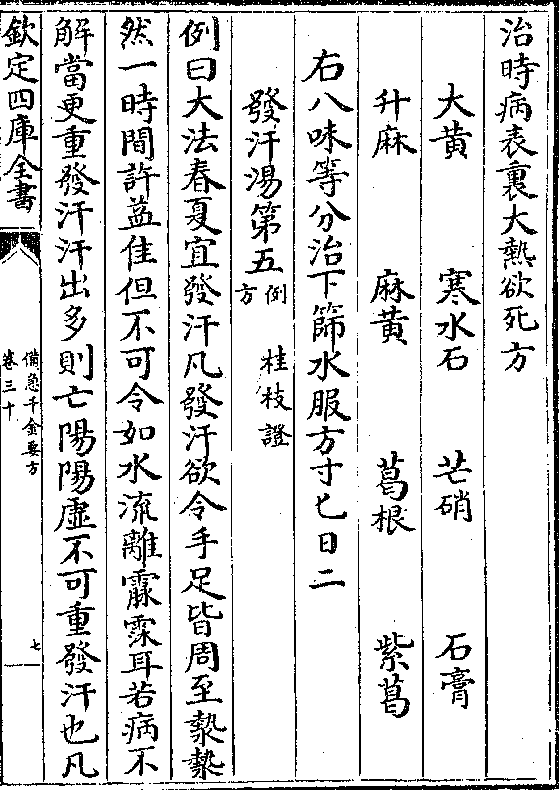 治時病表裏大熱欲死方
大黄　寒水石　芒硝　石膏
升麻　麻黄　葛根　紫葛
右八味等分治下篩水服方寸匕日二
發汗湯第五 例方 桂枝證
例曰大法春夏宜發汗凡發汗欲令手足皆周至漐漐
然一時間許益佳但不可令如水流離霡霂耳若病不
解當更重發汗汗出多則亡陽陽虛不可重發汗也凡
欽定四庫全書
備急千金要方
卷三十
七